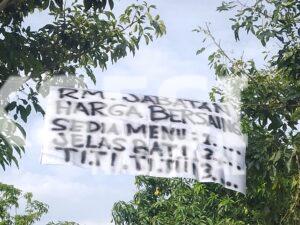 RM. JABATAN
HARGA BERSAING
SEDIA MENU : 1. ...
JELAS BATI 2. ...
TI.TI.TI.!!! 3. ...